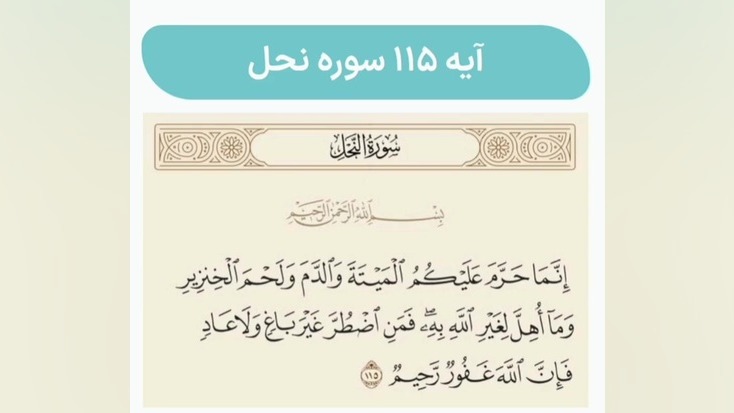 آیه ۱۱۵ سوره نحل
سُورَةُ النَّحْلِ
بِسْمِ ٱللَّهِ ٱلرَّحْمَٰنِ ٱلرَّحِيمِ
إِنَّمَا حَرَّمَ عَلَيْكُمُ ٱلْمَيْتَةَ وَٱلدَّمَ وَلَحْمَ ٱلْخِنزِيرِ
وَمَآ أُهِلَّ لِغَيْرِ ٱللَّهِ بِهِۦۖ فَمَنِ ٱضْطُرَّ غَيْرَ بَاغٍ وَلَا عَادٍ
فَإِنَّ ٱللَّهَ غَفُورٌ رَّحِيمٌ ١١٥